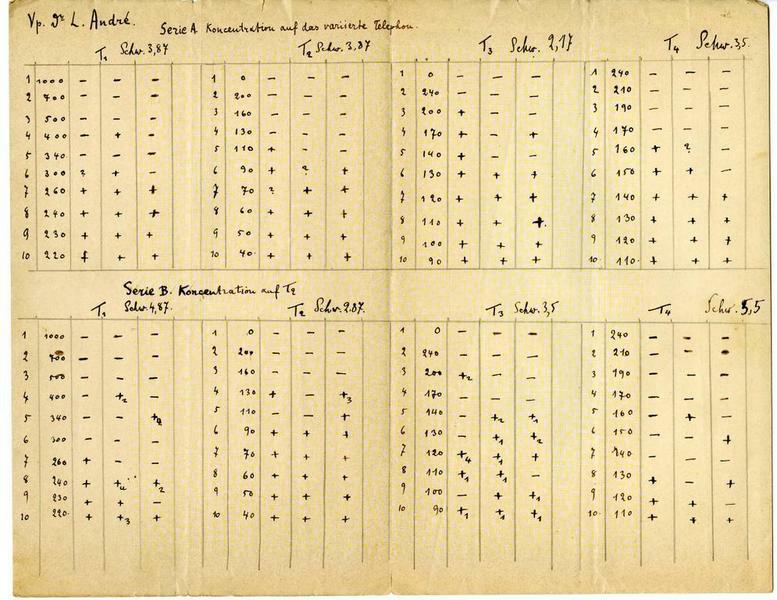 Vp. Dr L. André. Serie A Koncentration auf das variierte Telephon.
T1 Schw. 3,87 T2 Schw. 3,87 T3 Schw. 2,17 T4 Schw. 3,5
1 1000 – – – 1 0 – – – 1 0 – – – 1 240 – – –
2 700 – – – 2 200 – – – 2 240 – – – 2 210 – – –
3 500 – – – 3 160 – – – 3 200 + – – 3 190 – – –
4 400 – + – 4 130 – – – 4 170 + – + 4 170 – – –
5 340 – – – 5 110 + – – 5 140 + – – 5 160 + ? –
6 300 ? + – 6 90 + ? + 6 130 + + + 6 150 + + –
7 260 + + + 7 70 ? + + 7 120 + + + 7 140 + + +
8 240 + + + 8 60 + + + 8 110 + + + 8 130 + + +
9 230 + + + 9 50 + + + 9 100 + + + 9 120 + + +
10 220 + + + 10 40 + + + 10 90 + + + 10 110 + + +
Serie B. Koncentration auf T2
T1 Schw. 4,87. T2 Schw. 2.87. T3 Schw. 3,5 T4 Schw. 5,5
1 1000 – – – 1 0 – – – 1 0 – – – 1 240 – – –
2 700 – – – 2 200 – – – 2 240 – – – 2 210 – – –
3 500 – – – 3 160 – – – 3 200 +2 – – 3 190 – – –
4 400 – +2 – 4 130 + – +3 4 170 – – – 4 170 – – –
5 340 – – + 5 110 – – + 5 140 – +2 +1 5 160 – + –
6 300 – – – 6 90 + + + 6 130 – +1 +2 6 150 – – +
7 260 + – – 7 70 + + + 7 120 +4 +1 +1 7 140 – – –
8 240 + +4 +2 8 60 + + + 8 110 +1 +1 – 8 130 + – +
9 230 + + – 9 50 + + + 9 100 – + +1 9 120 + + –
10 220 + +3 + 10 40 + + + 10 90 +1 +1 +1 10 110 + + +